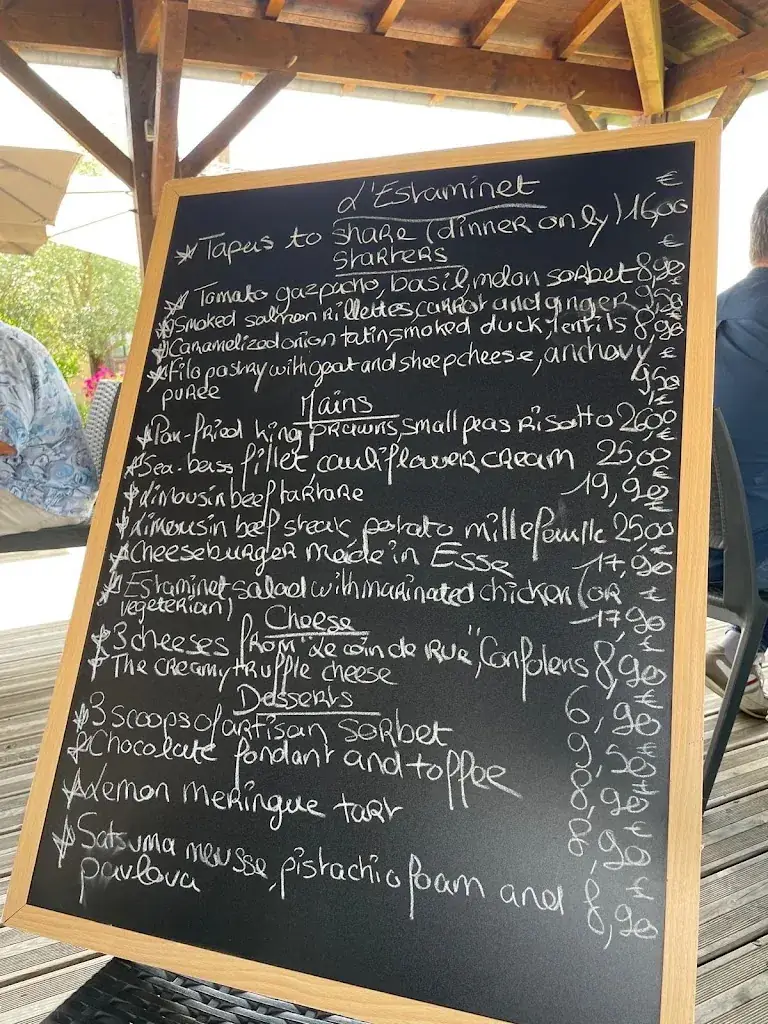 L'Estaminet
€
* Tapas to share (dinner only) 16,00
€
Starters
* Tomato gazpacho, basil, melon sorbet 8,90
* Smoked salmon rillettes, carrot and ginger 9,50
* Caramelized onion tatin, smoked duck, lentils 8,90
* Filo pastry with goat and sheep cheese, anchovy €
purée 9,50
Mains
* Pan-fried king prawns, small peas risotto 26,00
* Sea-bass fillet cauliflower cream 25,00
* Limousin beef tartare 19,90
* Limousin beef steak potato millefeuille 25,00
* Cheeseburger made in Esse 17,90
* Estaminet salad with marinated chicken (or
vegeterian) 17,90
Cheese
* 3 cheeses from "Le coin de Rue", Confolens 8,90
* The creamy truffle cheese 6,90
Desserts
* 3 scoops of artisan sorbet 9,50
* Chocolate fondant and toffee 8,90
* Lemon meringue tart 8,90
* Satsuma mousse, pistachio foam and 8,90
pavlova